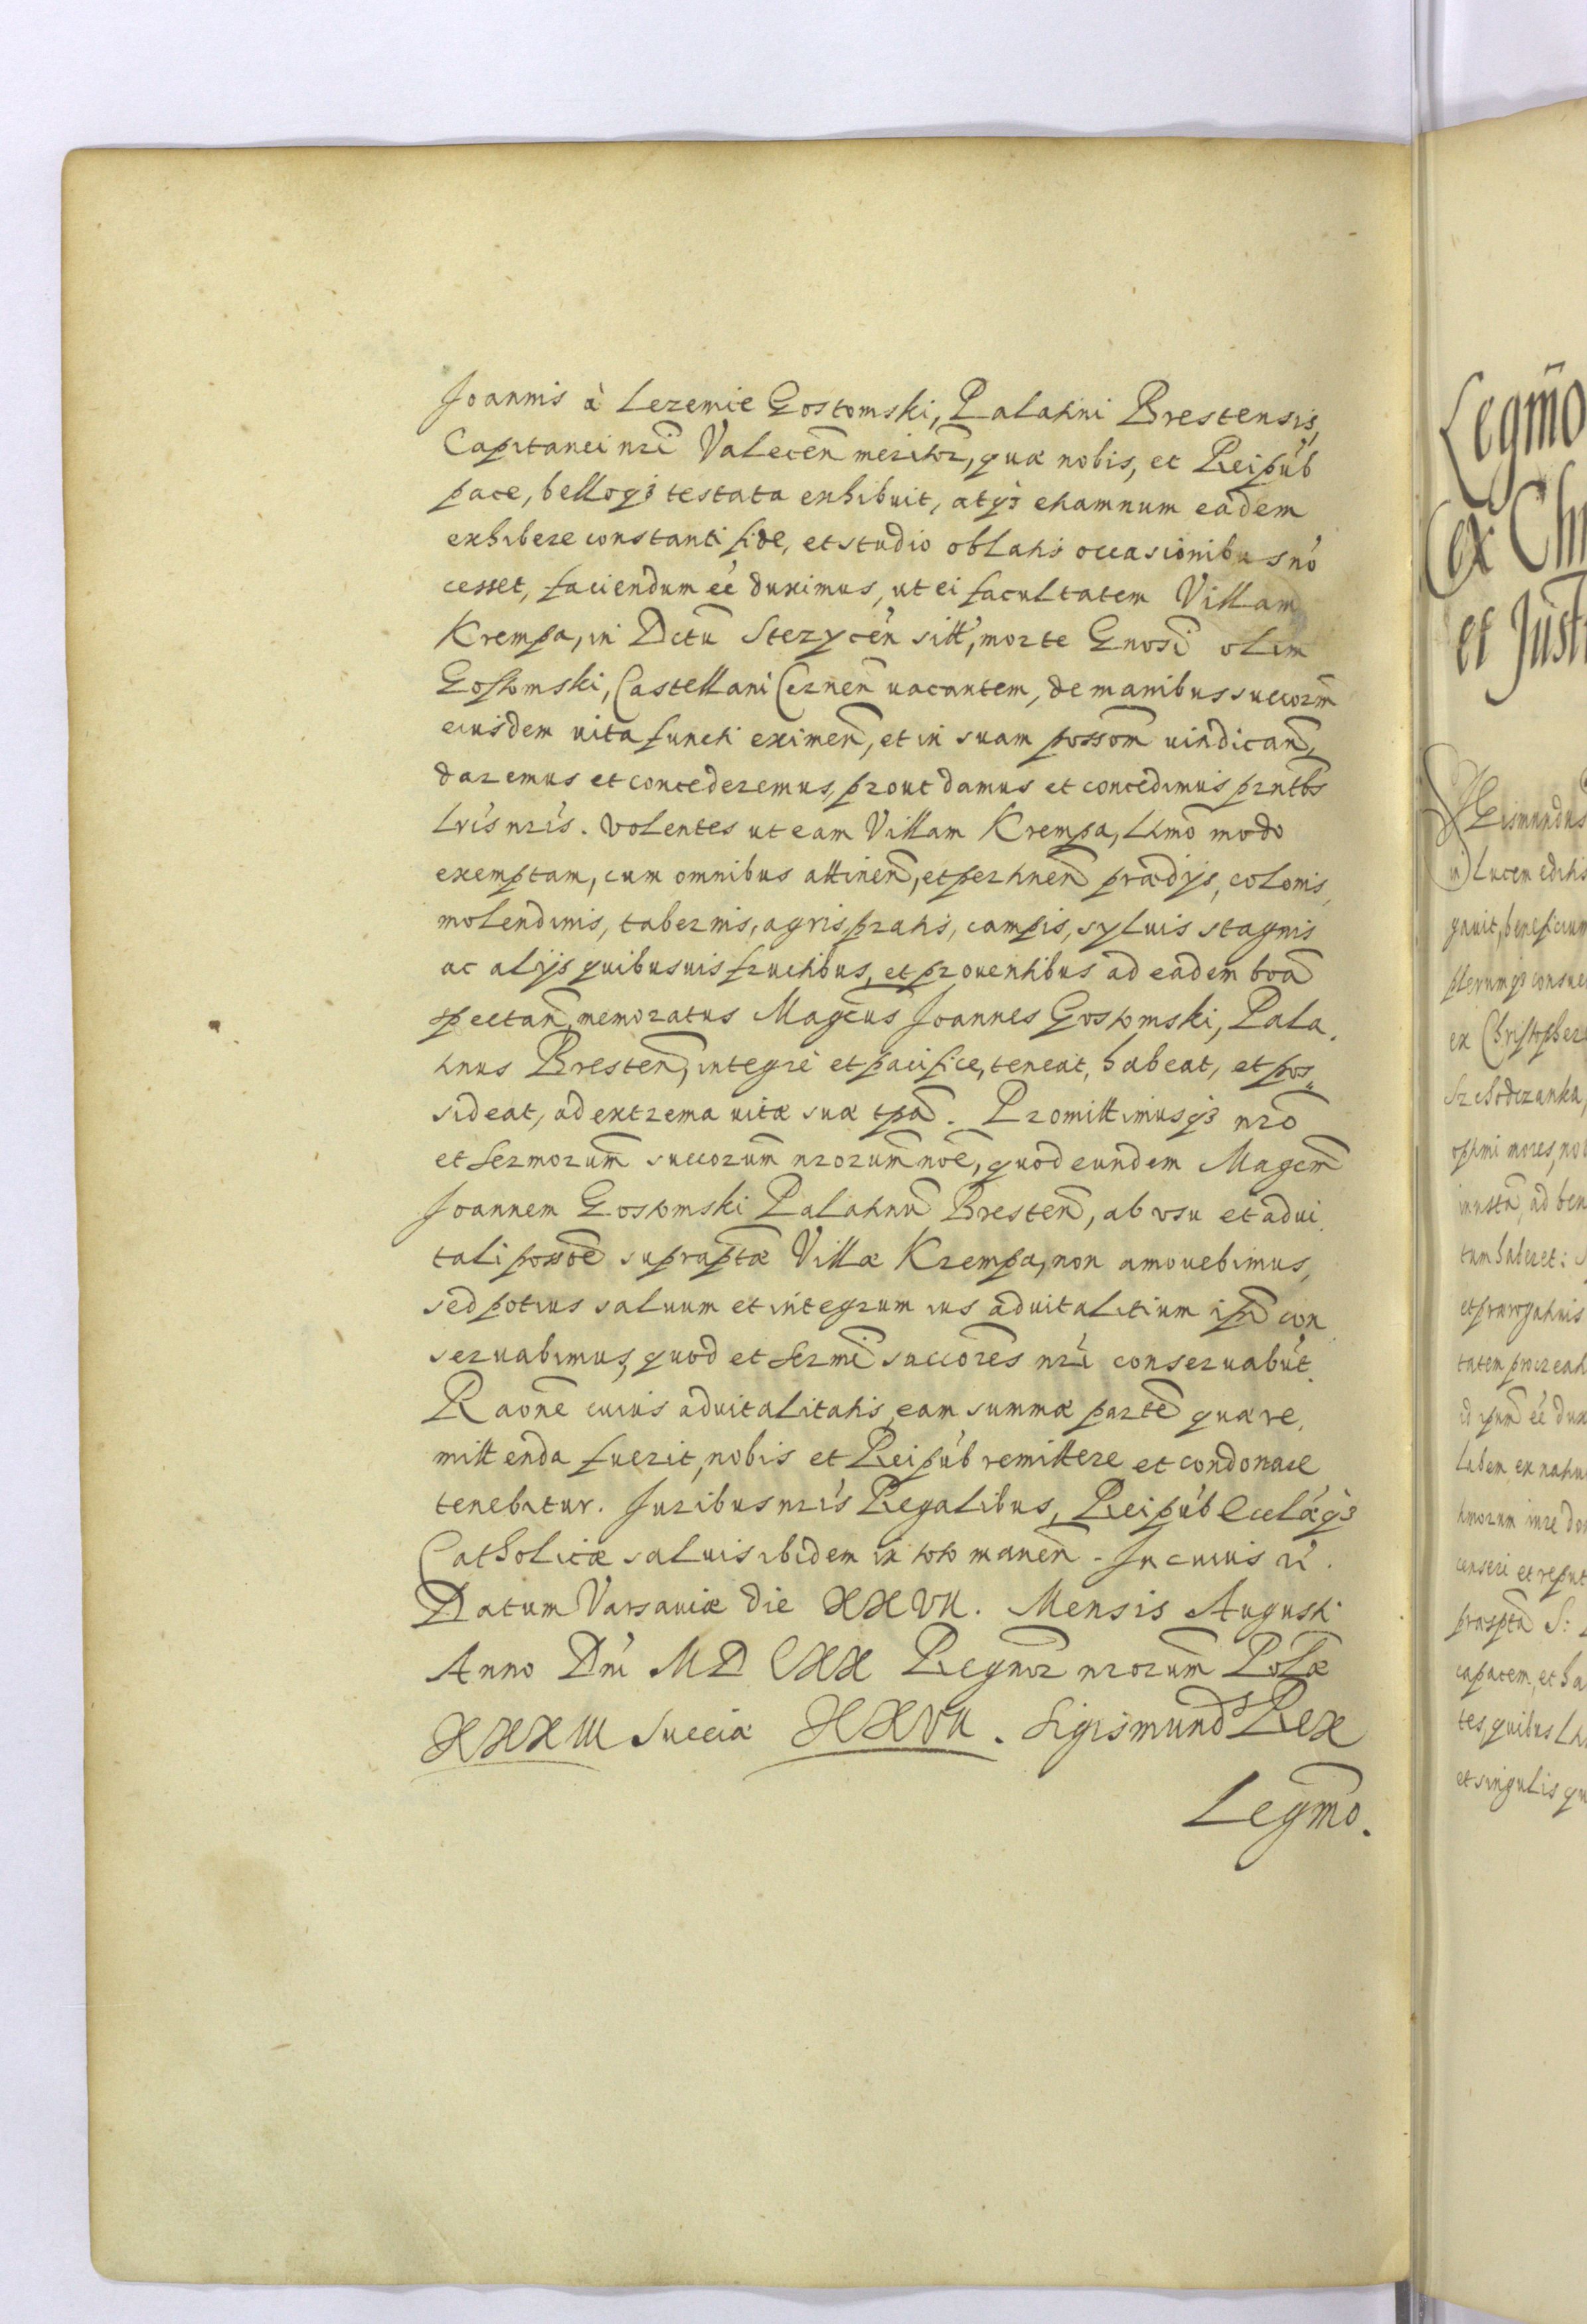 Joannis à Lezenic Gostomski, Palatini Brestensis,
Capitanei nr̃i Valecen̄ meritor̃, quæ nobis, et Reipub́
pace, belloq3 testata exhibuit, atq3 etiamnum eadem
exhibere constanti fide, et studio oblatis occasionibus nó
cesset, faciendum éé duximus, ut ei facultatem Villam
Krempa, in Dctũ Stezycén sitt', morte Gnosĩ olim
Gostomski, Castellani Cernen̄ vacantem, de manibus succorm̃
eiusdem vita functi eximen̄, et in suam possom̃ vindican̄,
daremus et concederemus, prout damus et concedimus prntbs̃
Lr̃is nr̃is. volentes ut eam Villam Krempa, Ltimo modo
exemptam, cum omnibus attinen̄, et pertinen̄ prædijs, colonis,
molendinis, tabernis, agris, pratis, campis, syluis stagnis
ac alijs quibusuis fructibus, et prouentibus ad eadem boã
spectan̄, memoratus Magcus̃ Joannes Gostomski, Pala
tinus Bresten̄, integrè et pacifice, teneat, habeat, et pos„
sideat, ad extrema vitæ suæ tpã. Promittimusq3 nrõ
et Sermorum̃ succorum̃ nrorum̃ noẽ, quod eundem Magcm̃
Joannem Gostomski Palatinũ Bresten̄, ab vsu et adui
tali possõe supraptæ̃ Villæ Krempa, non amouebimus,
sed potius saluum et integrum ius aduitalitium ipĩ con
seruabimus, quod et Sermĩ succores̃ nr̃i conseruabút.
Raõne cuius aduitalitatis, eam summæ partẽ quæ re,
mittenda fuerit, nobis et Reipub́ remittere et condonare
tenebitur. Juribus nr̃is Regalibus, Reipub́ Eccláeq3
Catholicæ saluis ibidem in toto manen̄. In cuius rí.
Datum Varsauiæ die XXVII. Mensis Augusti
Anno Dn̄i MDCXX Regnor̃ nrorum̃ Polæ̃
XXXIII Sueciæ XXVII. Sigismund9 Rex
Legm̃o.
Legm̃o
ex Chr
et Just
in Lucem editis
gauit, beneficium
plerumq3 consue
ex Christopher
opimi mores, no
tum haberet:
tatem procreat
censeri et reput
capacem, et ha
tes, quibus
et singulis qu